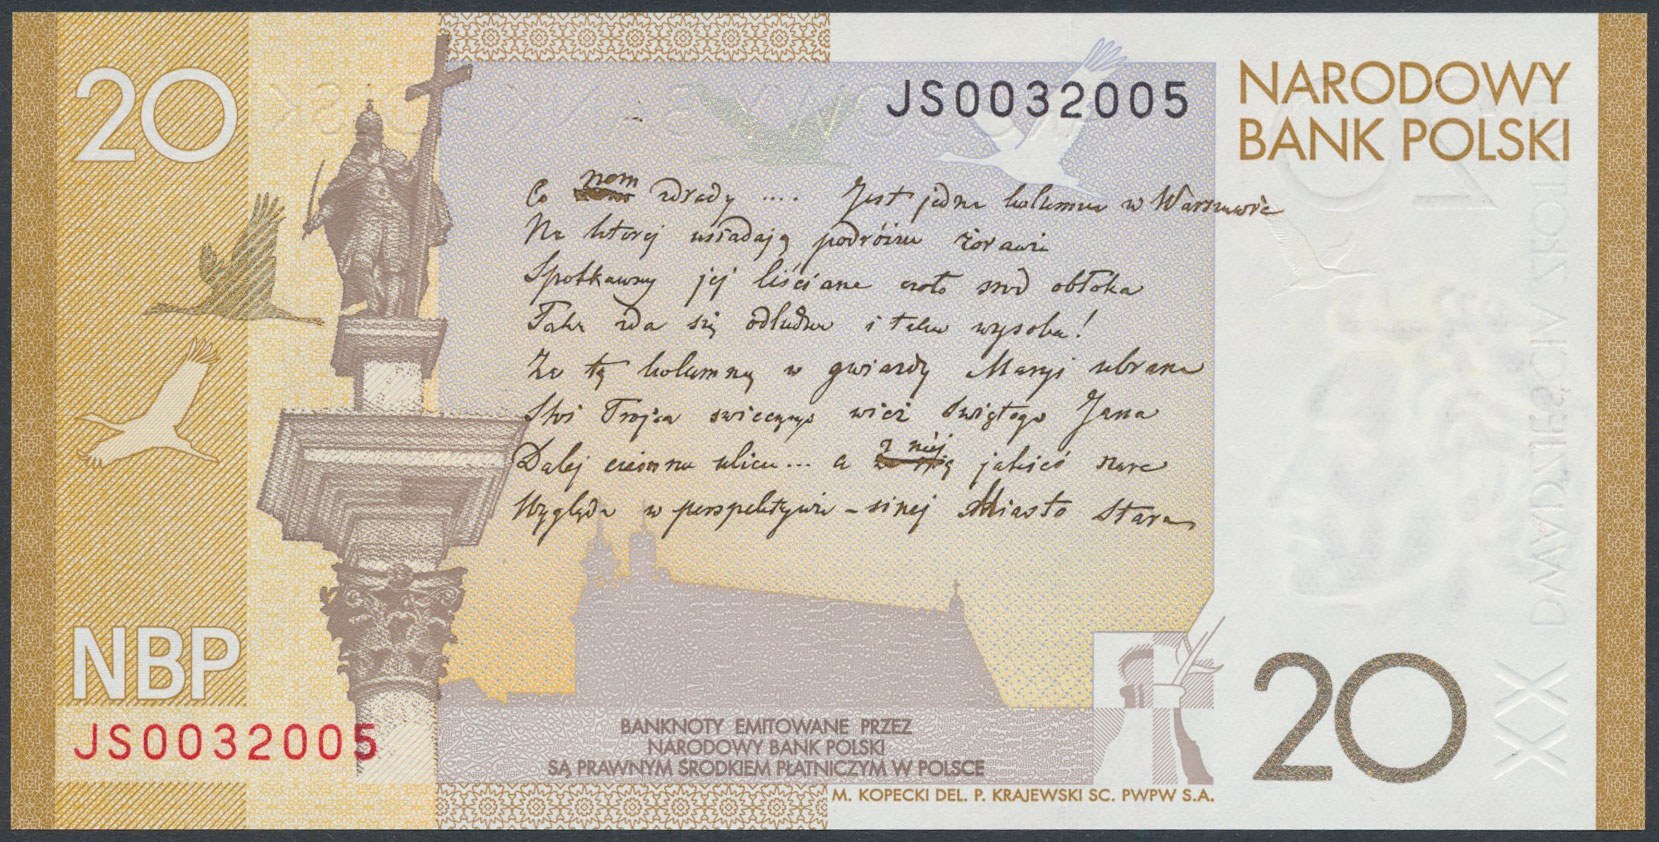 20
JS0032005
NARODOWY
BANK POLSKI
Co nam zdrady .... Jest jedna kolumna w Warszawie
Na ktorej usiadają podróżne żorawie
Spotkawszy jej liściane czoło srod obłoka
Taka zda się odludna i taka wysoka!
Za tą kolumną w gwiazdy Maryi ubrana
Stoi Trojca swiecących wież Swiętego Jana
Dalej ciemna ulica... a z niej jakieś szare
Wygląda w perspektywie - sinej Miasto Stare
NBP
JS0032005
BANKNOTY EMITOWANE PRZEZ
NARODOWY BANK POLSKI
SĄ PRAWNYM ŚRODKIEM PŁATNICZYM W POLSCE
M. KOPECKI DEL. P. KRAJEWSKI SC. PWPW S.A.
20
XX